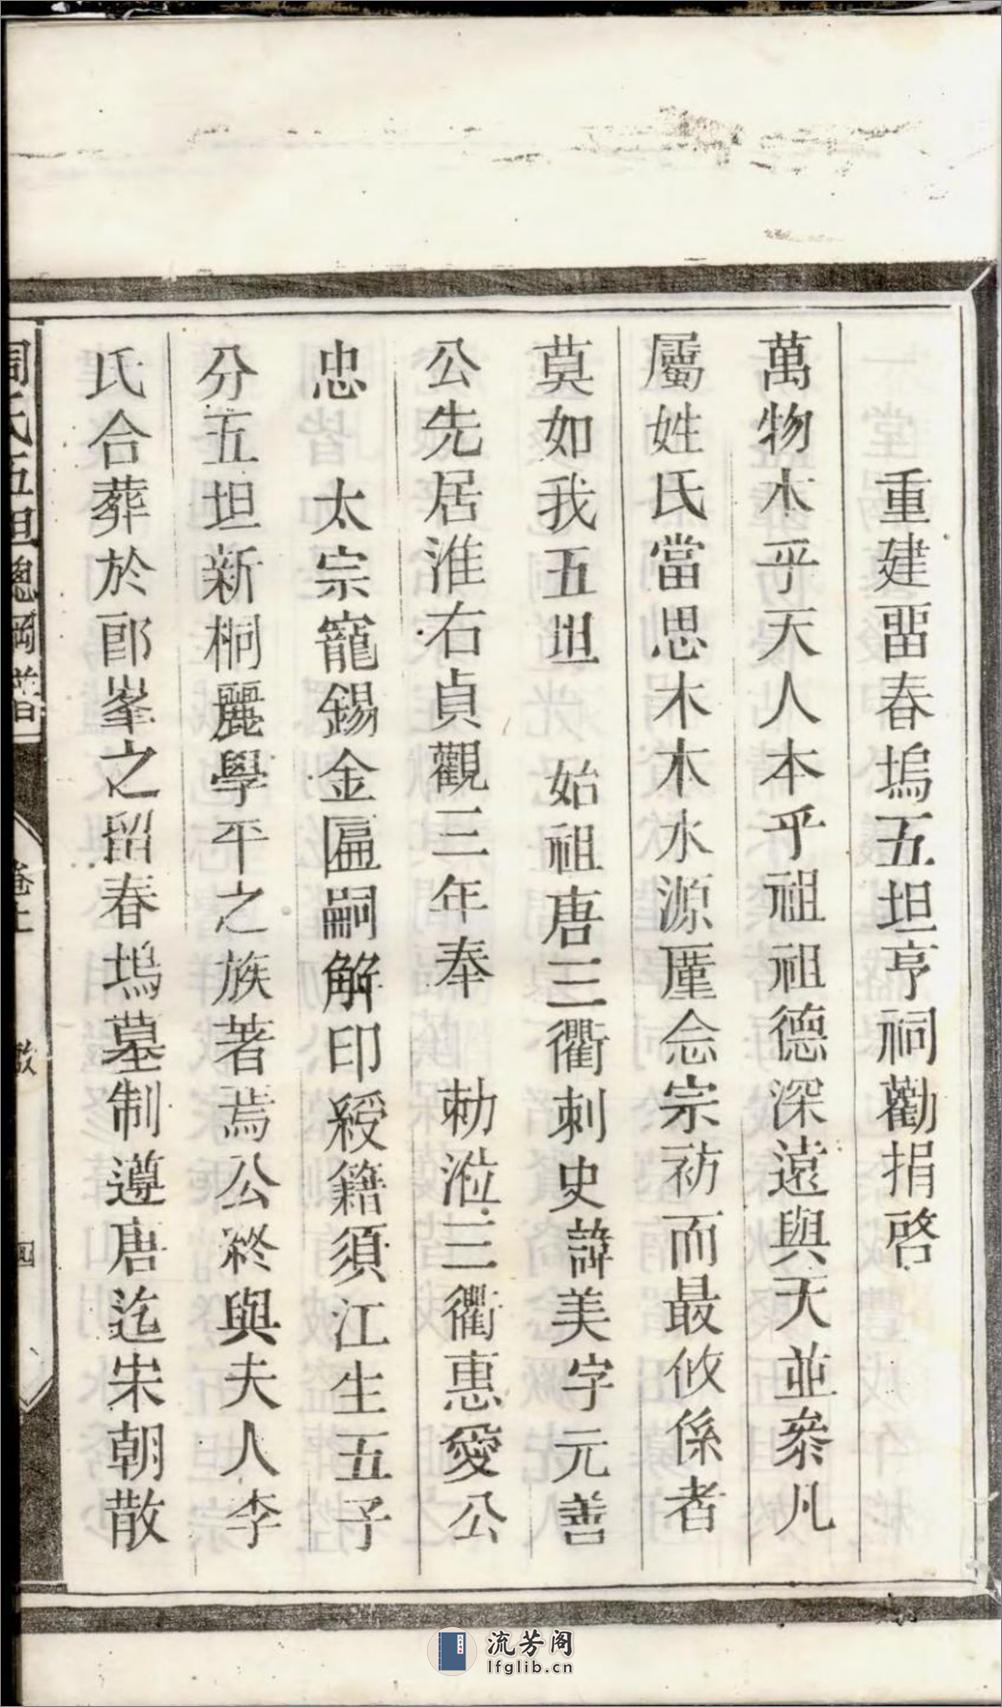 重建畱春塢五坦享祠勸捐啓
萬物木乎天人本乎祖祖德深遠與天並叅凡
屬姓氏當思木木水源厪念宗祊而最攸係者
莫如我五坦　始祖唐三衢刺史諱美字元善
公先居淮右貞觀三年奉　勅涖三衢惠愛公
忠　太宗寵錫金匾嗣解印綬籍須江生五子
分五坦新桐麗學平之族著焉公終與夫人李
氏合葬於郎峯之畱春塢墓制遵唐迄宋朝散
周氏五坦總綱譜
卷上
啟
四
流芳阁
lfglib.cn